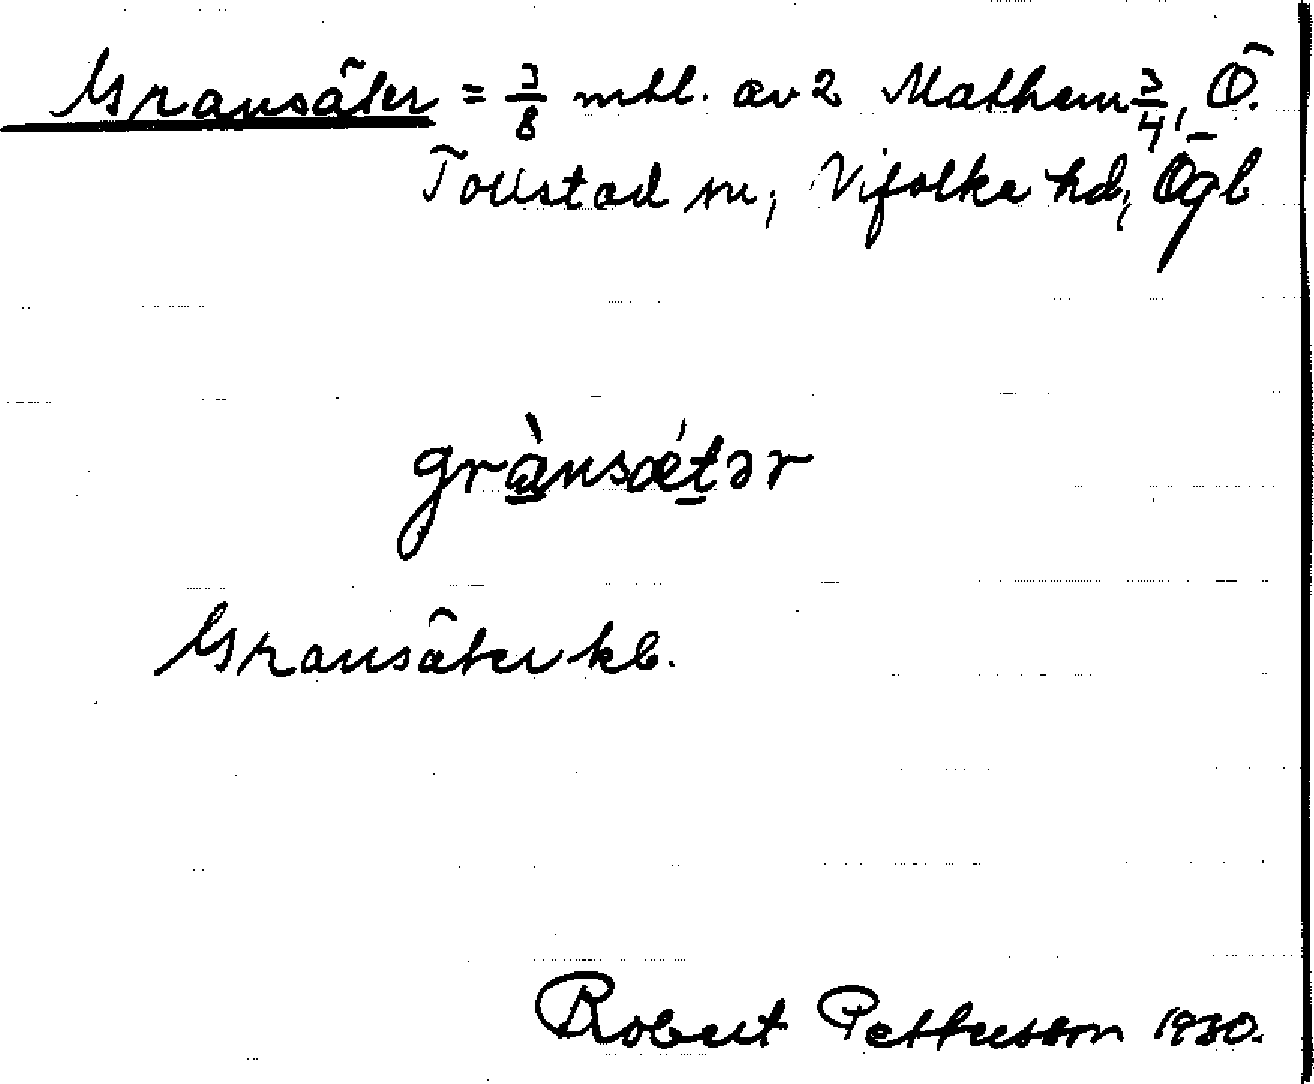 Gransäter = 3/8 mtl. av 2 Mathem 3/4, Ö.
Tollstad sn, Vifolka hd, Ögl
grànsǽtər
Gransäter kb.
Robert Pettersson 1930.